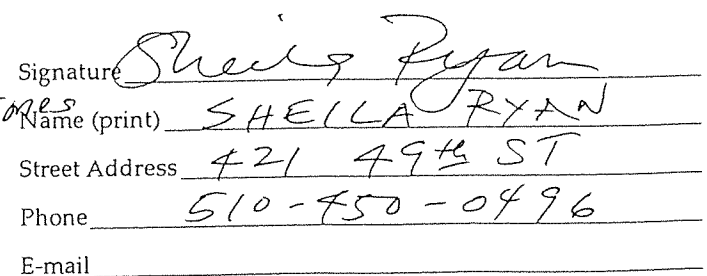 Signature Sheila Ryan
Name (print) SHEILA RYAN
Street Address 421 49th ST
Phone 510-450-0496
E-mail